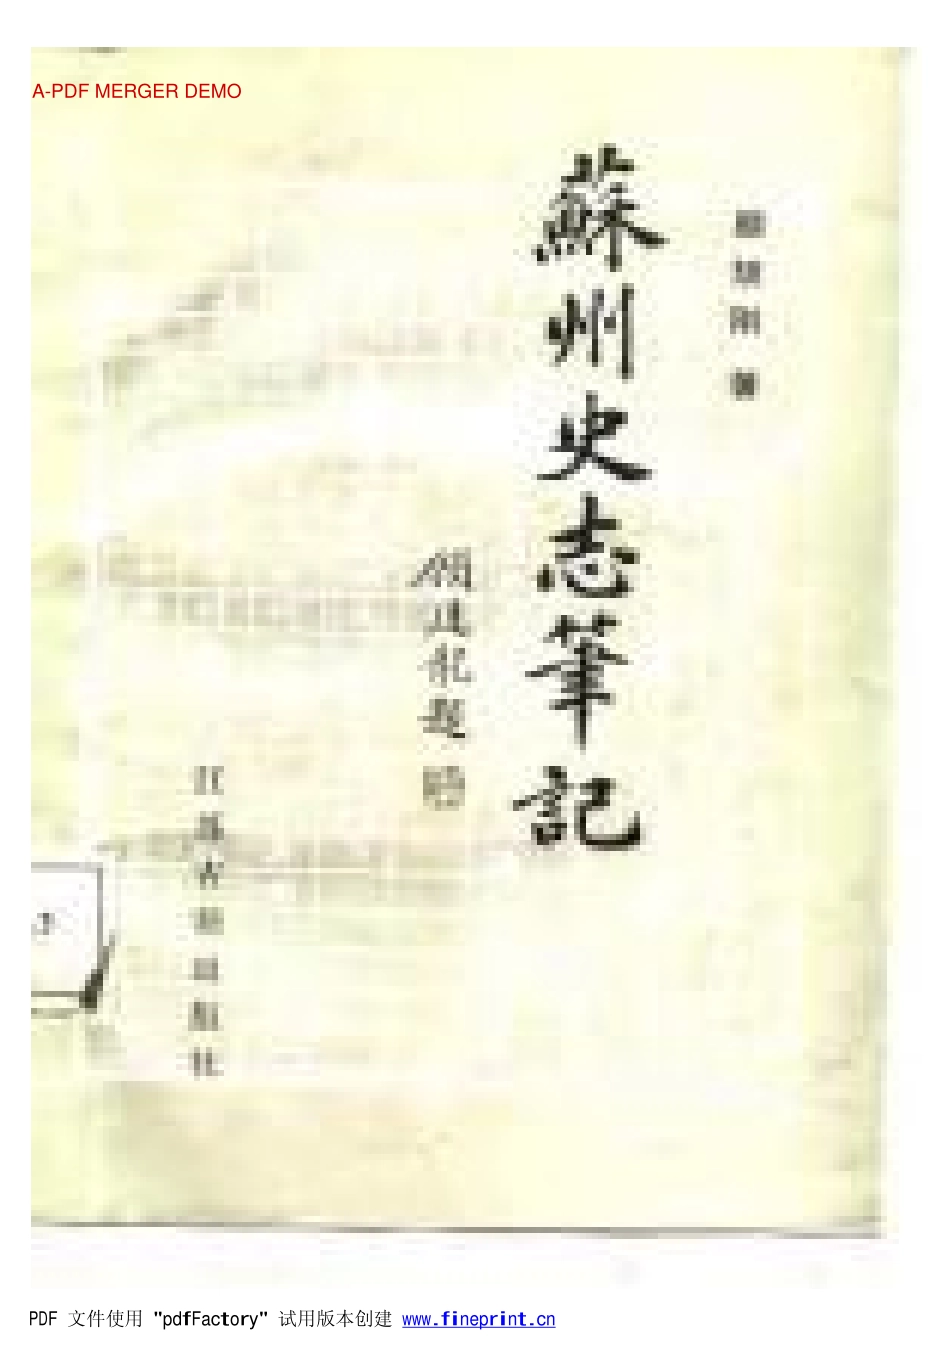 A-PDF MERGER DEMO
顾颉刚 著
蘇州史志筆記
顧廷龍題
江苏古籍出版社
PDF 文件使用 "pdfFactory" 试用版本创建 www.fineprint.cn